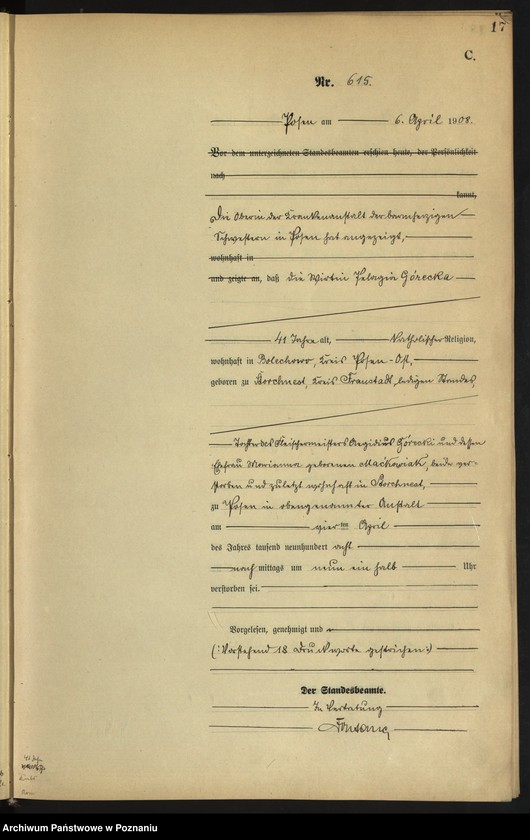 17
C.
Nr. 615.
Posen am 6. April 1908.
Vor dem unterzeichneten Standesbeamten erschien heute, der Persönlichkeit
nach
kannt,
Die Oberin der Krankenanstalt der barmherzigen
Schwestern in Posen hat angezeigt,
wohnhaft in
und zeigte an, daß die Wirtin Pelagia Górecka
41 Jahre alt, katholischer Religion,
wohnhaft in Bolechowo, Kreis Posen-Ost,
geboren zu Storchnest, Kreis Fraustadt, ledigen Standes,
Tochter des Fleischermeisters Aegidius Górecki und dessen
Ehefrau Marianna geborenen Maćkowiak, beide ver-
storben und zuletzt wohnhaft in Storchnest,
zu Posen in obengenannter Anstalt
am vierten April
des Jahres tausend neunhundert acht
nachmittags um neun ein halb Uhr
verstorben sei.
Vorgelesen, genehmigt und
(: Vorstehend 18 Druckworte gestrichen :)
Der Standesbeamte.
In Vertretung
Archiwum Państwowe w Poznaniu